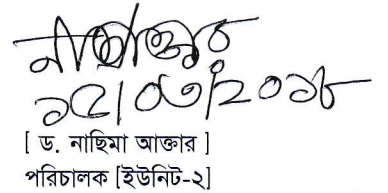 নাআক্তার
১৫/০৩/২০১৮
[ ড. নাছিমা আক্তার ]
পরিচালক [ইউনিট-২]